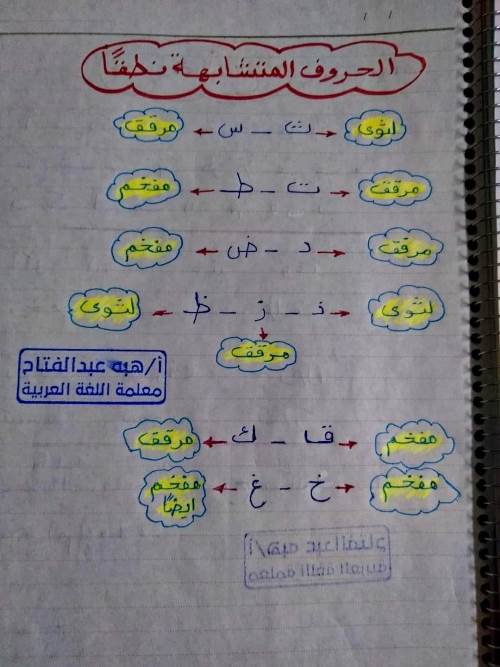 الحروف المتشابهة نطقًا
لثوى ← ث - س → مرقق
مرقق ← ت - ط → مفخم
مرقق ← د - ض → مفخم
لثوى ← ذ - ز - ظ → لثوى
مرقق
أ/هبه عبدالفتاح
معلمة اللغة العربية
مفخم ← ق - ك → مرقق
مفخم ← خ - غ → مفخم
ايضًا